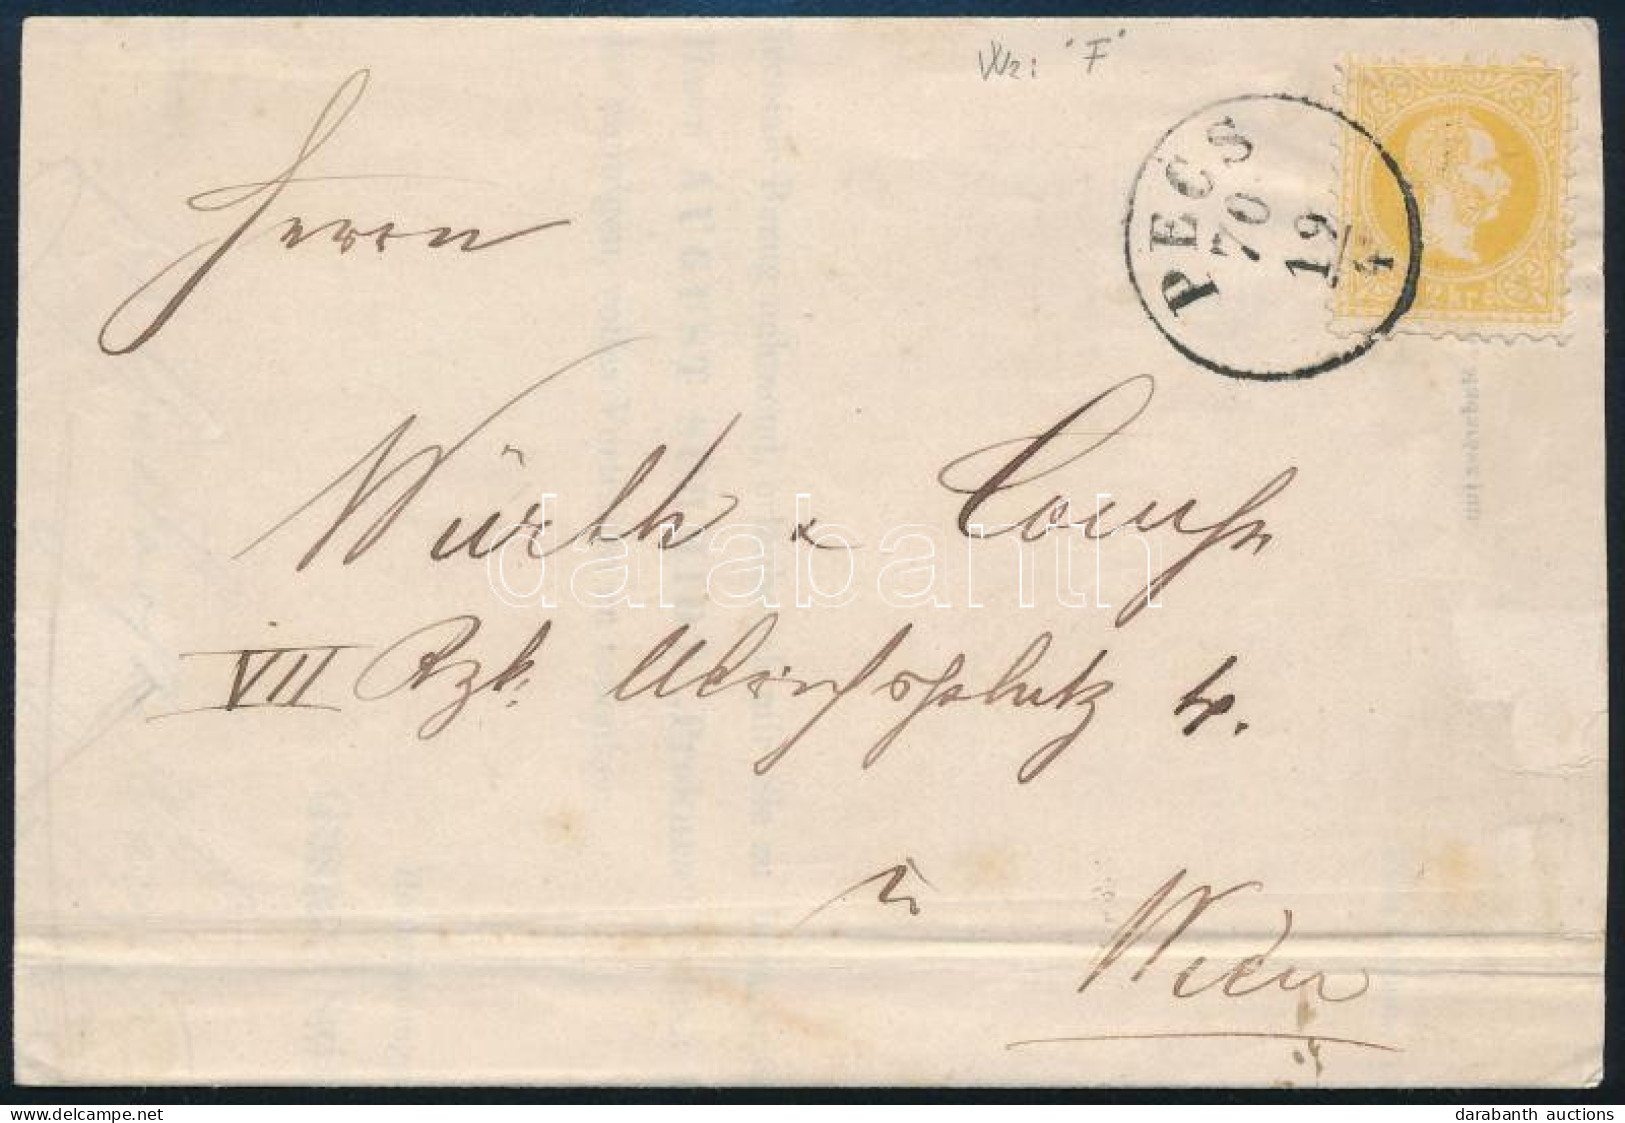 Wz: "F"
PÉCS
70
19/4
2 kr.
Herrn
Würth & Comp.
VII Bzk. Ulrichsplatz 4.
in
Wien
darabanth
Great Stamps & Coins
darabanth auctions